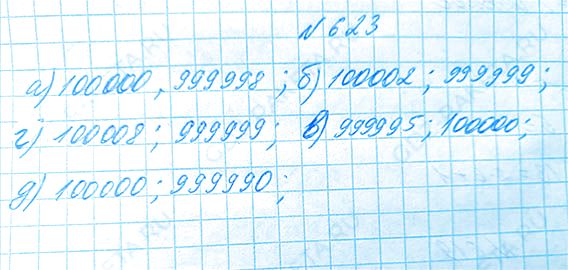 № 623
а) 100000, 999998; б) 100002; 999999;
г) 100008; 999999; в) 999995; 100000;
д) 100000; 999990;